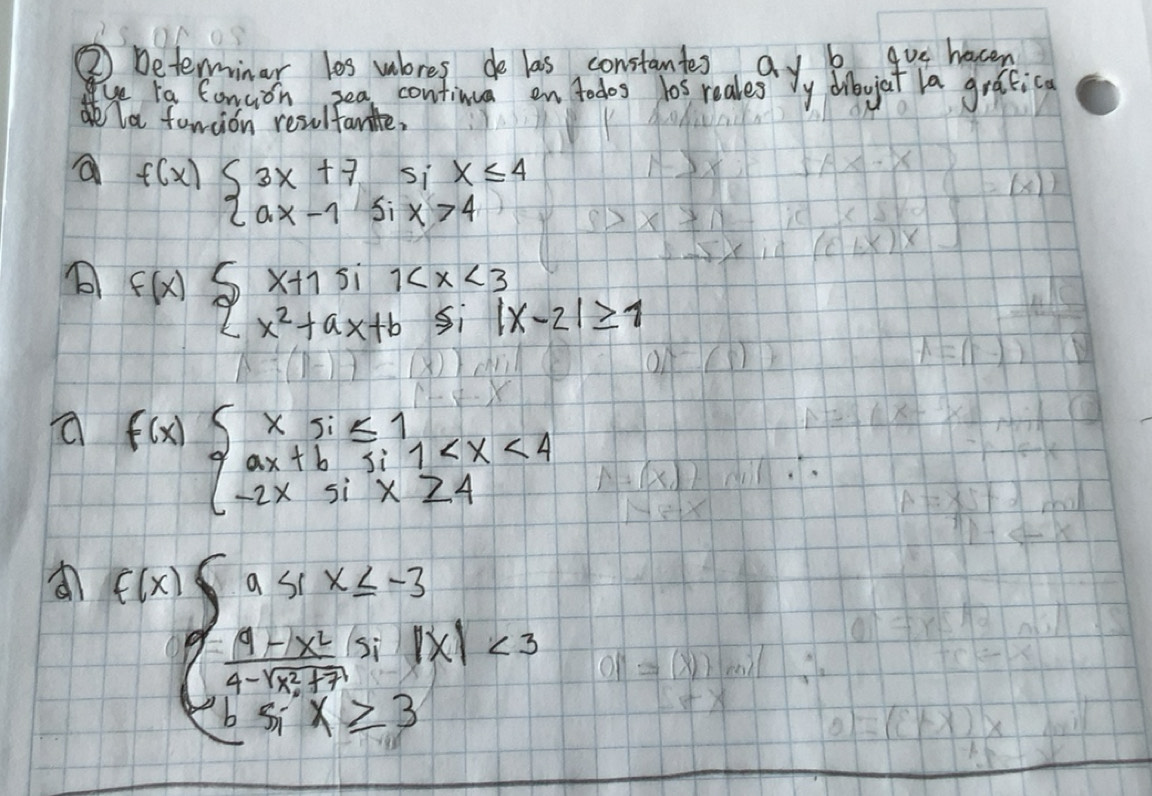 ② Determinar los valores de las constantes a y b que hacen
que la función sea continua en todos los reales y dibujar la gráfica
de la función resultante.
a) f(x) { 3x + 7 si x ≤ 4
ax - 1 si x > 4
b) f(x) { x+1 si 1 < x < 3
x² + ax + b si |x-2| ≥ 1
c) f(x) { x si ≤ 1
ax + b si 1 < x < 4
-2x si x ≥ 4
d) f(x) { a si x ≤ -3
9 - x² / 4 - √x² + 7 si |x| < 3
b si x ≥ 3